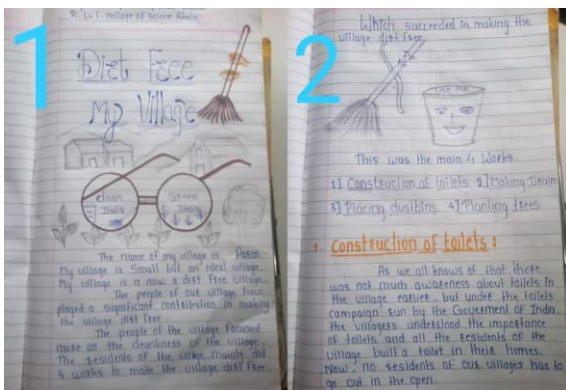 1
R. L. T. College of Science Akola
Dirt Free
My Village
Clean
India
Green
India
The name of my village is
My village is Small but an ideal village.
My village is a now a dirt free village.
The people of our village have
played a significant contribution in making
the village dirt free.
The people of the village focused
more on the cleanliness of the village.
The residents of the village mainly did
4 works to make the village dirt free.
2
Which succeeded in making the
village dirt free.
USE ME
This was the main 4 Works.
1] Construction of toilets 2] Making Drain
3] Placing dustbins 4] Planting trees
1. Construction of toilets :
As we all knows of that there
was not much awareness about toilets in
the village earlier. but under the toilets
campaign run by the Goverment of India.
the villagers understood the importance
of toilets and all the residents of the
village built a toilet in their homes.
Now, no residents of our villages has to
go out in the open.